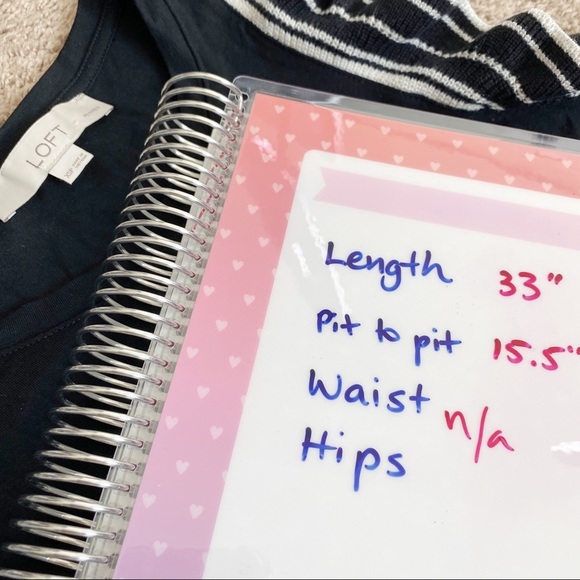 LOFT
Length 33"
Pit to pit 15.5"
Waist n/a
Hips